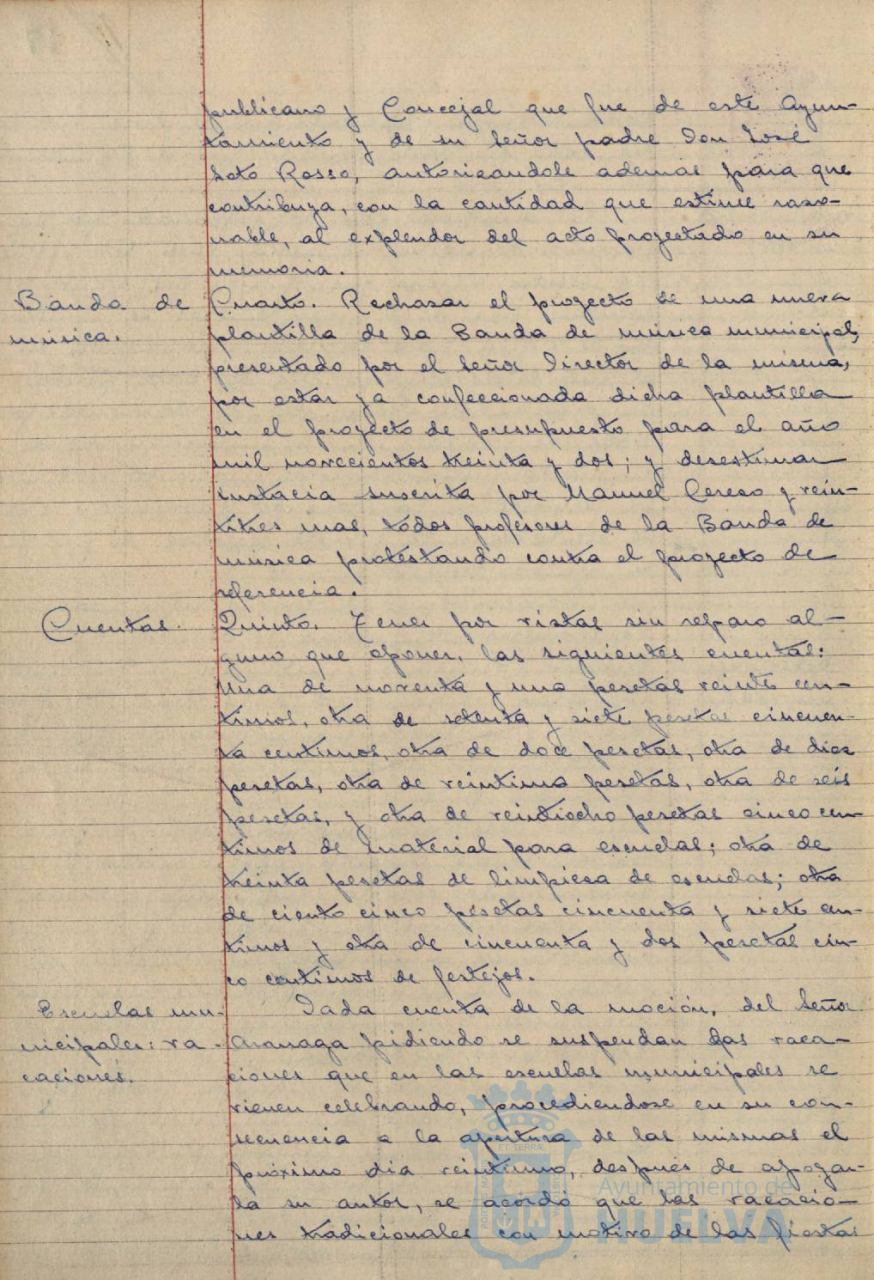 publicano y Concejal que fue de este Ayun-
tamiento y de su Señor padre Don José
Soto Rosso, autorizandole ademas para que
contribuya, con la cantidad que estime razo-
nable, al explendor del acto proyectado en su
memoria.
Banda de música.
Cuarto. Rechazar el proyecto de una nueva
plantilla de la Banda de música municipal,
presentado por el Señor Director de la misma,
por estar ya confeccionada dicha plantilla
en el proyecto de presupuesto para el año
mil novecientos treinta y dos; y desestimar
instacia suscrita por Manuel Cerezo y vein-
titres mas, todos profesores de la Banda de
música protestando contra el proyecto de
referencia.
Cuentas.
Quinto. Tener por vistas sin reparo al-
guno que oponer, las siguientes cuentas:
una de noventa y una pesetas veinte cen-
timos, otra de setenta y siete pesetas cincuen-
ta centimos, otra de doce pesetas, otra de diez
pesetas, otra de veintiuna pesetas, otra de seis
pesetas, y otra de veintiocho pesetas cinco cen-
timos de material para escuelas; otra de
treinta pesetas de limpieza de escuelas; otra
de ciento cinco pesetas cincuenta y siete cen-
timos y otra de cincuenta y dos pesetas cin-
co centimos de festejos.
Escuelas mu-
nicipales: va-
caciones.
Dada cuenta de la moción, del Señor
Aranaga pidiendo se suspendan las vaca-
ciones que en las escuelas municipales se
vienen celebrando, procediendose en su con-
secuencia a la apertura de las mismas el
próximo dia veintiuno, después de apoyar-
la su autor, se acordó que las vacacio-
nes tradicionales con motivo de las fiestas
Ayuntamiento de
HUELVA